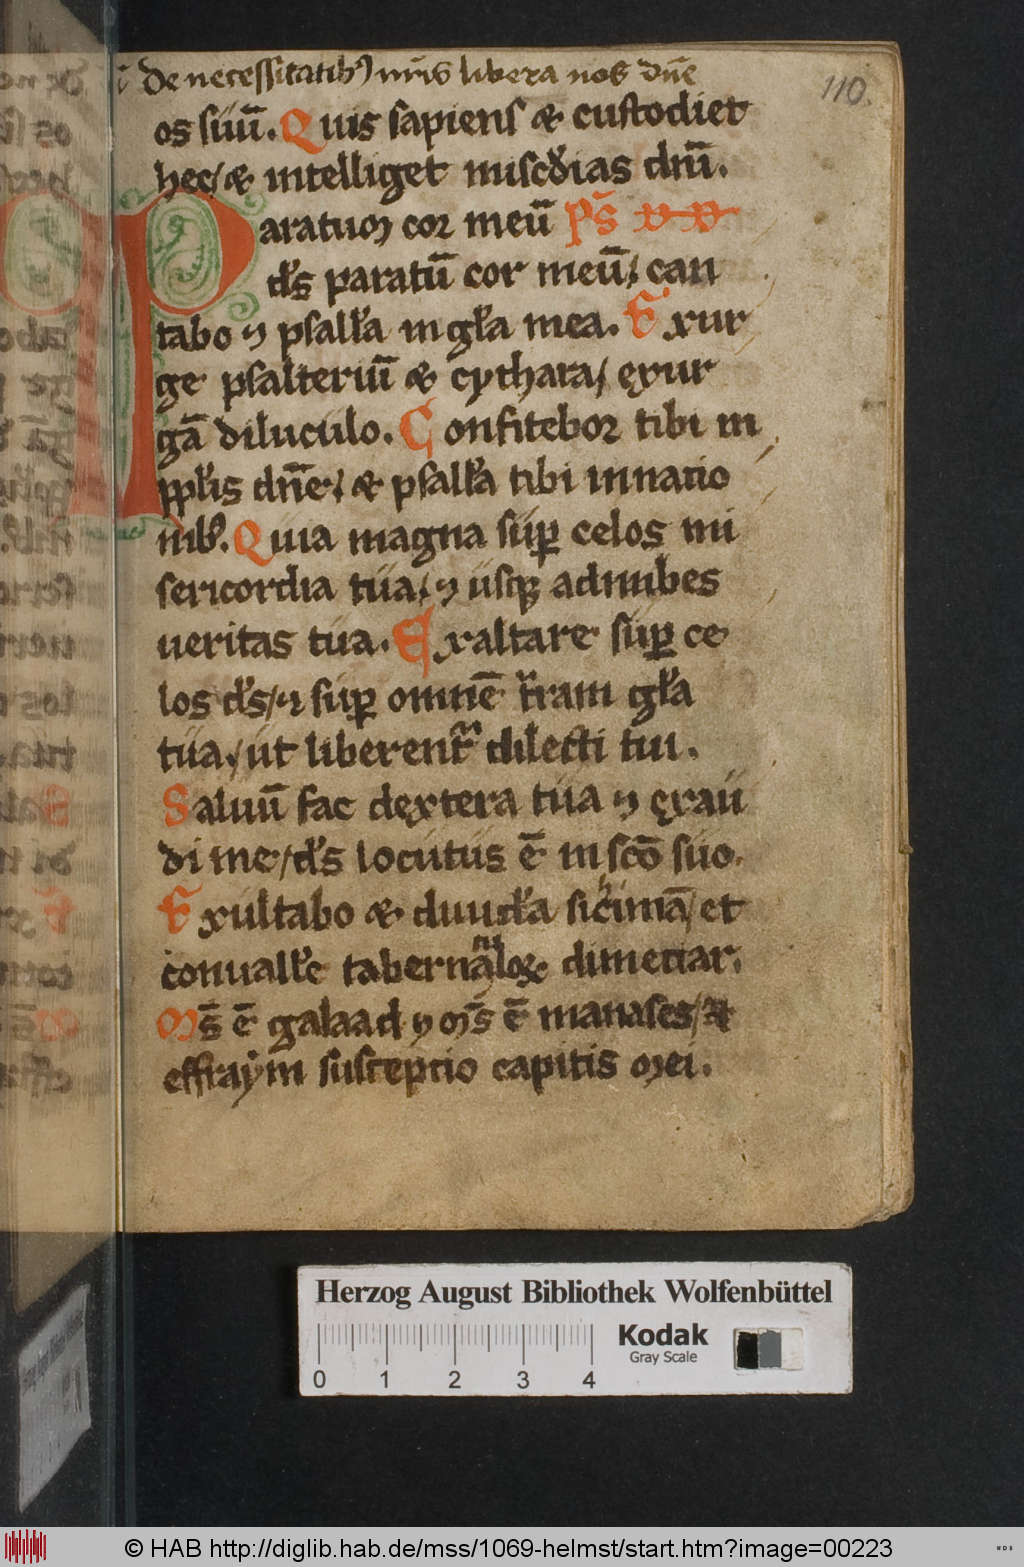 De necessitatib9 nr̄is libera nos dn̄e
110.
os suū. Quis sapiens & custodiet
hec / & intelliget misc̄dias dnī.
Paratum cor meū ps̄
ds̄ paratū cor meū / can
tabo ⁊ psallā in gl̄a mea. Exur
ge psalteriū & cythara / exur
gā diluculo. Confitebor tibi in
ppl̄is dn̄e / & psallā tibi in natio
nib9. Quia magna sup celos mi
sericordia tua / ⁊ usq; ad nubes
ueritas tua. Exaltare sup ce
los ds̄ / ⁊ sup omnē t̄ram gl̄a
tua / ut liberent᷑ dilecti tui.
Saluū fac dextera tua ⁊ exau
di me / ds̄ locutus ē in sc̄o suo.
Exultabo & duuidā sicimā / et
conuallē tabernalo&#42843; dimetiar.
Ms̄ ē galaad ⁊ ms̄ ē manases / &
effraym susceptio capitis mei.
Herzog August Bibliothek Wolfenbüttel
Kodak
Gray Scale
0 1 2 3 4
© HAB http://diglib.hab.de/mss/1069-helmst/start.htm?image=00223